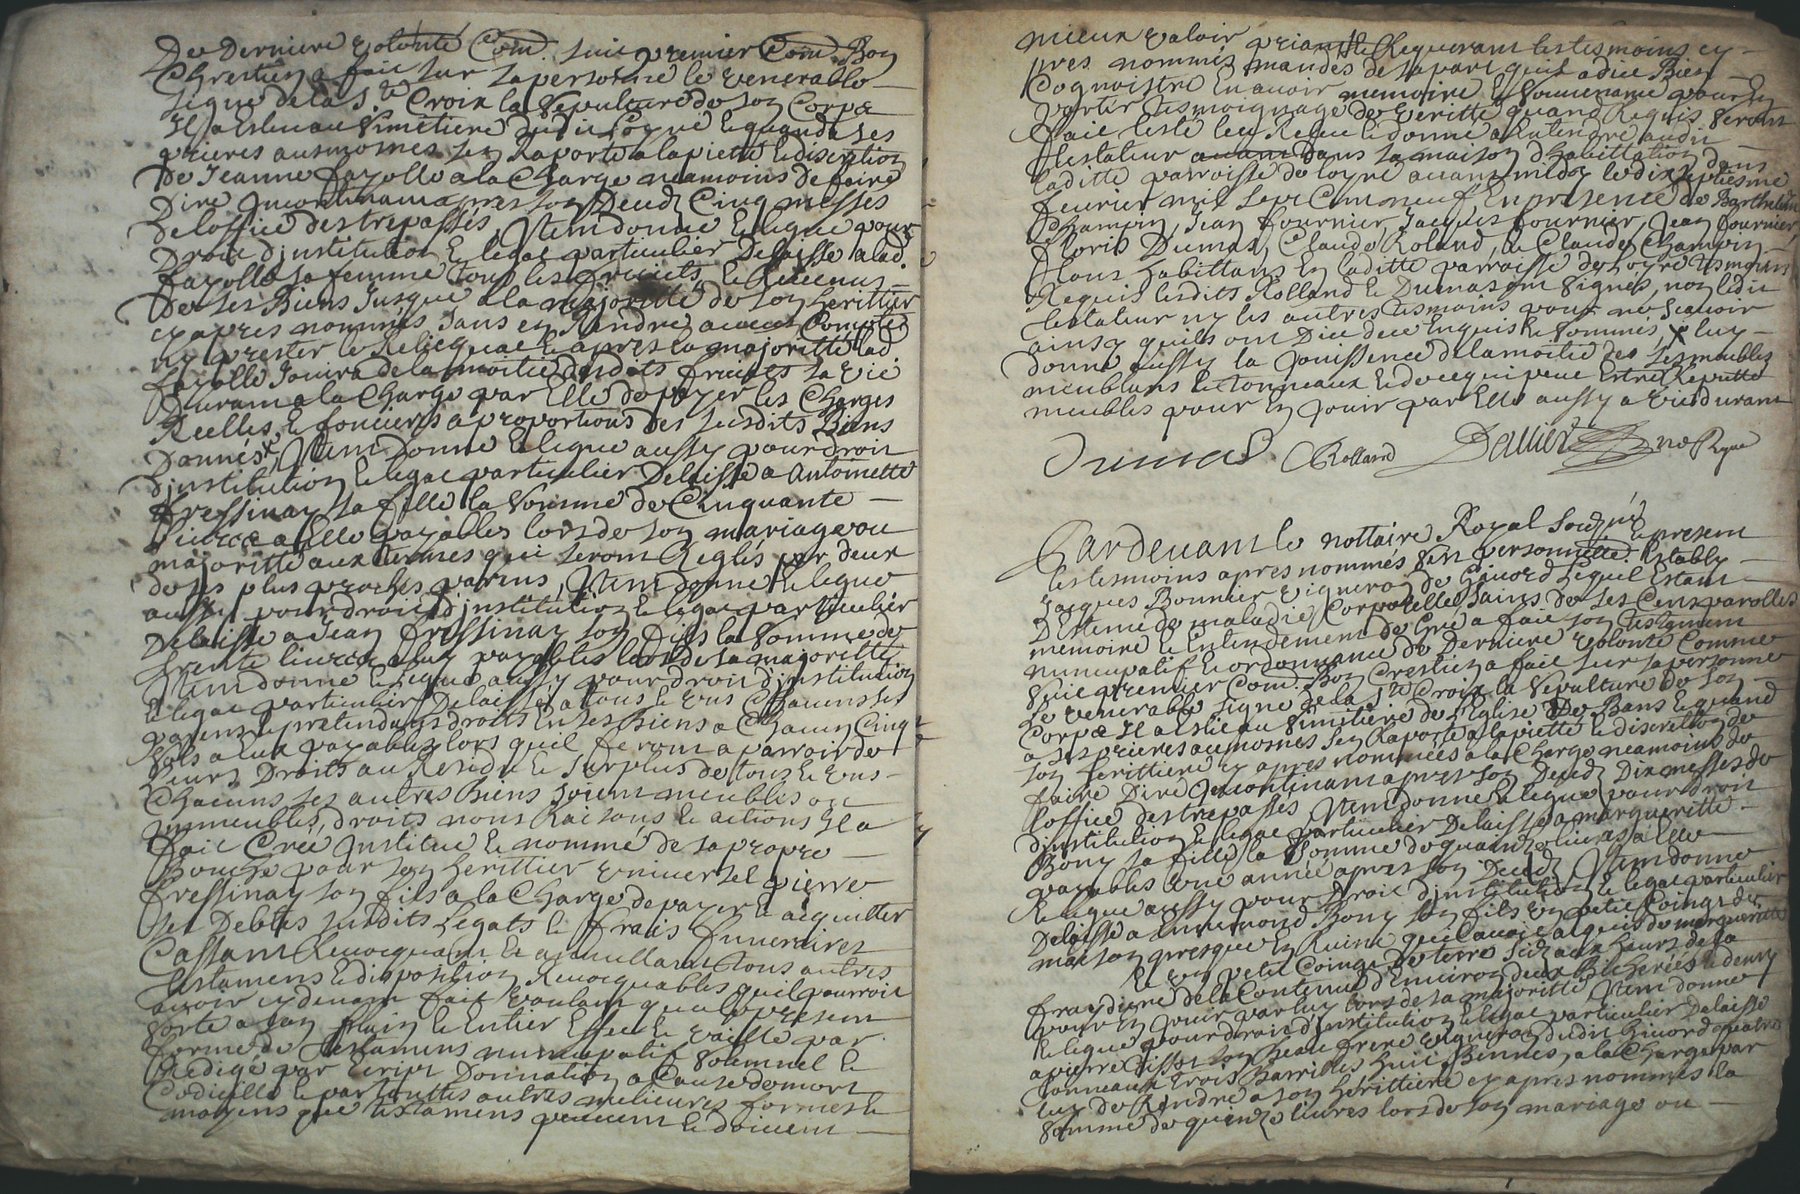 De Derniere volonté Com. suit premier Com. Bon
Chrestien a fait sur sa personne le venerable
signe de la Ste Croix la sepulture de son Corps
Il a Esleu au simetiere dudit Loyre le quand a ses
prieres aumosnes sen Raporte a la pietté et discretion
De Jeanne fayolle a la Charge neamoins de faire
Dire Incontinant apres son Deudz Cinq messes
de loffice des trepassés, Item donne et legue pour
Droit dinstitution et legat particulier Delaisse a lad.
fayolle sa femme tous les fruicts et Revenus
De ses Biens Jusque a la majoritté de son heritier
cy apres nommés sans en Rendre aucun Compte
ny prester le Reliequat et apres la majoritté lad.
fayolle Jouira de la moitié desdits fruicts sa vie
Durant a la Charge par Elle de payer les Charges
Reelles et foncieres a proportions des susdits Biens
Donnés x, Item Donne et legue aussy pour droit
dinstitution et legat particulier Delaisse a Antoinette
fressinay sa fille la somme de Cinquante
livres a Elle payables lors de son mariage ou
majoritté aux termes qui seront Reglés par deux
de ses plus proches parens, Item donne et legue
aussy pour droit dinstitution et legat particulier
Delaisse a Jean fressinay son fils la somme de
trente livres a luy payables lors de sa majoritté
Item donne et legue aussy pour droit dinstitution
et legat particulier Delaisse a tous et uns Chacuns ses
parens et pretendants droits En ses Biens a Chacun Cinq
sols a Eux payables lors quil feront aparroir de
leurs Droits au Residu et surplus de tous et uns
Chacuns ses autres Biens soient meubles ou
immeubles, droits noms Raisons et actions Il a
fait Creé Institué et nommé de sa propre
Bouche pour son herittier universel pierre
fressinay son fils a la Charge de payer et acquitter
ses Debtes susdits Legats et frais funeraires
Cassant Revocquant et annullant tous autres
testamens et disposition Revocquables quil pourroit
avoir cy devant fait voulant que le present
sorte a son plain et Entier Effect et vaille par
forme de testamens nuncupatif solemnel et
Redigé par Ecript Donnation a Cause de mort
Codicille et par touttes autres meilieures formes et
moyens que testamens peuvent et doivent
mieux valoir priant et Requerant les tesmoins cy
pres nommés mandés de sa part quil a dict Bien
Cognoistre En avoir memoire et souvenance pour En
porter tesmoignage de veritté quand Requis seront
faict leste leu Releu et donné a Entendre audit
testateur dans sa maison dhabittation dans
laditte parroisse de Loyre avant midy le dix septiesme
feuvrier mil sept Cent neuf, En presence de Barthelemy
Champin, Jean fournier Jacques fournier, Jean fournier,
floris Dumas, Claude Roland, et Claude Champin
tous habittans En laditte parroisse de Loyre tesmoins
Requis lesdits Rolland et Dumas ont signés, non ledit
testateur ny les autres tesmoins pour ne scavoir
ainsy quils ont Dict dece Enquis et sommés, x luy
donne aussy la Jouissence de la moitié des ses meubles
meublans et tonneaux et de ce qui peut Estre Reputté
meubles pour En Jouir par Elle aussy a vie durant
Dumas Rolland Dallier no Royal
Pardevant le nottaire Royal soussigné et present
les tesmoins apres nommés Est personnellement Estably
Jacques Bonnier vigneron de Givord Lequel Estant
Destenu de maladie Corporelle sains de ses Cens parolles
memoire et Entendement De Gré a fait son testament
nuncupatif et ordonnance de Derniere volonté Comme
suit premier Com. Bon Crestien a fait sur sa personne
Le venerable signe de la Ste Croix la sepulture de son
Corps Il a Esleu au simetiere de l'Eglise De Bans le quand
a ses prieres aumosnes sen Raporte a la pietté et discretion de
son herittiere cy apres nommées a la Charge neamoins de
faire Dire Incontinant apres son Deudz Dix messes de
loffice des trepassés Item donne et legue pour droit
dinstitution et legat particulier Delaisse a margueritte
Bony sa fille la somme de quinze livres a Elle
payables une année apres son Deudz Item donne
et legue aussy pour Droit dinstitution et legat particulier
Delaisse a Annemond Bony son fils Un petit Coingt de
maison presque En Ruine quil avoit acquis de margueritte
et un petit Coingt de terre sciz aux hauts de la
fraydiere de la Contenue d'environ deux Bicherées et demy
pour En Jouir par luy lors de sa majoritté Item donne
et legue pour droit d'Institution et legat particulier Delaisse
a pierre tissot son beau frere vigneron dudit Givord quatre
tonneaux trois Barrilles huit Bennes, a la Charge par
luy de Rendre a son herittiere cy apres nommés la
somme de quinze livres lors de son mariage ou